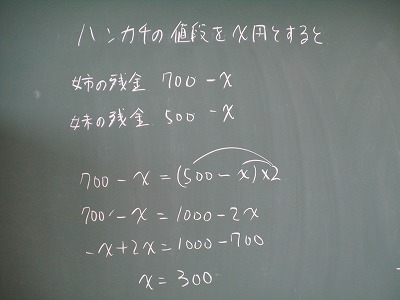 ハンカチの値段をx円とすると
姉の残金 700 - x
妹の残金 500 - x
700 - x = (500 - x)×2
700 - x = 1000 - 2x
-x + 2x = 1000 - 700
x = 300